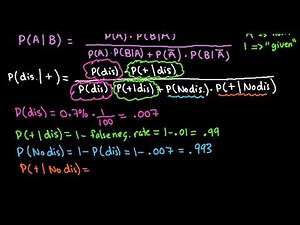 P(A|B) = P(A)·P(B|A) / P(A)·P(B|A) + P(Ā)·P(B|Ā)
| => "given"
P(dis.|+) = P(dis)·P(+|dis) / P(dis)·P(+|dis) + P(No dis.)·P(+|No dis)
P(dis) = 0.7%·1/100 = .007
P(+|dis) = 1 - false neg. rate = 1-.01 = .99
P(No dis) = 1 - P(dis) = 1-.007 = .993
P(+|No dis) =